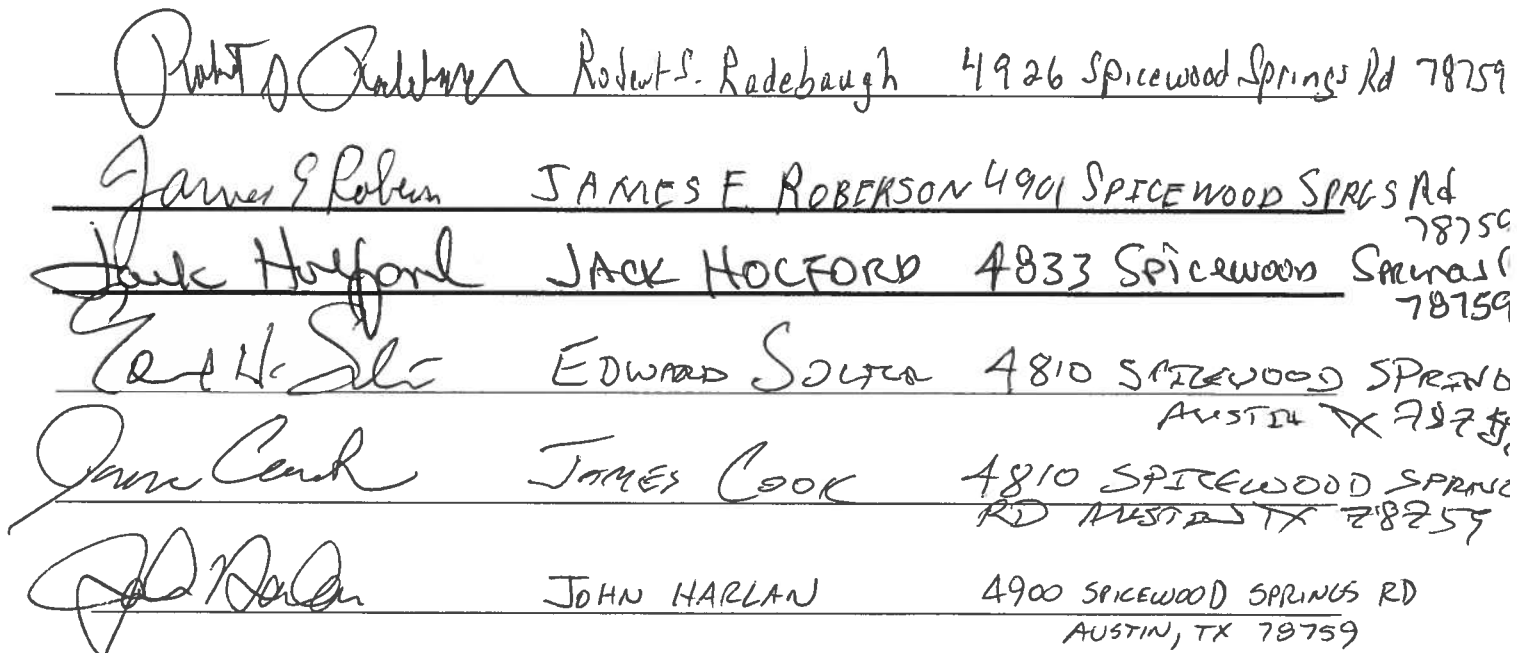 Robert S Radebaugh Robert S. Radebaugh 4926 Spicewood Springs Rd 78759
James E Roberson JAMES E ROBERSON 4901 SPICEWOOD SPRGS Rd
78759
Jack Holford JACK HOLFORD 4833 Spicewood Springs
78759
EDWARD 4810 SPICEWOOD SPRING
AUSTIN TX
James Cook JAMES COOK 4810 SPICEWOOD SPRING
RD AUSTIN TX 78759
John Harlan JOHN HARLAN 4900 SPICEWOOD SPRINGS RD
AUSTIN, TX 78759